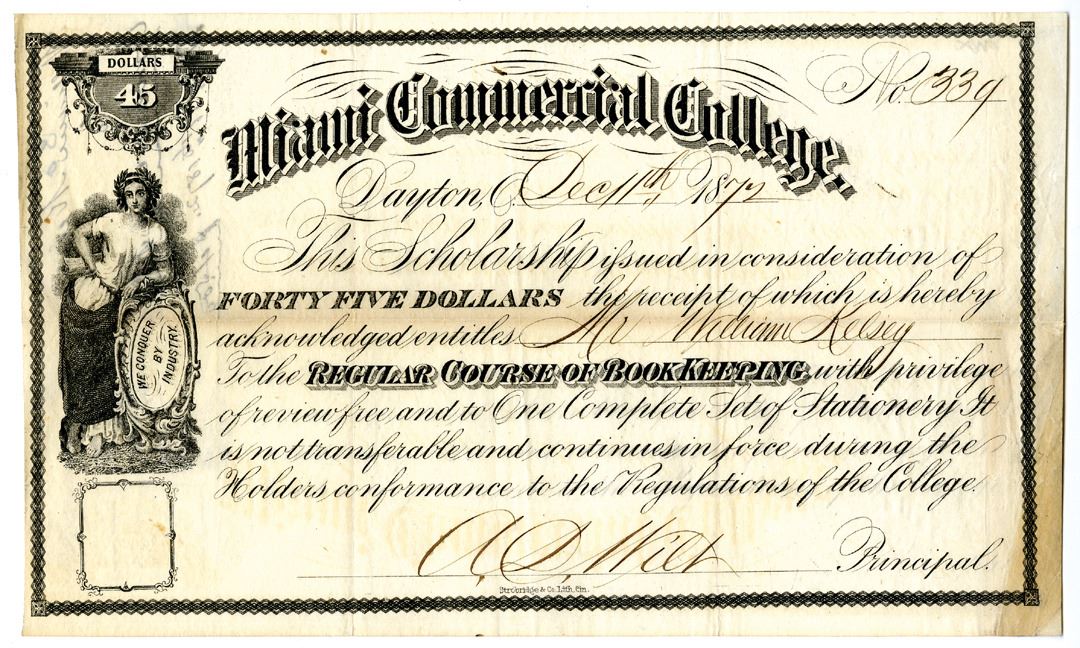 DOLLARS
45
No. 339
Miami Commercial College.
Dayton, O. Dec 11th, 1872
This Scholarship issued in consideration of
FORTY FIVE DOLLARS the receipt of which is hereby
acknowledged entitles Mr William Kelsey
To the REGULAR COURSE OF BOOK KEEPING, with privilege
of review free and to One Complete Set of Stationery It
is not transferable and continues in force during the
Holders conformance to the Regulations of the College.
WE CONQUER
BY
INDUSTRY.
A. D. Wilt Principal.
Strobridge & Co. Lith. Cin.